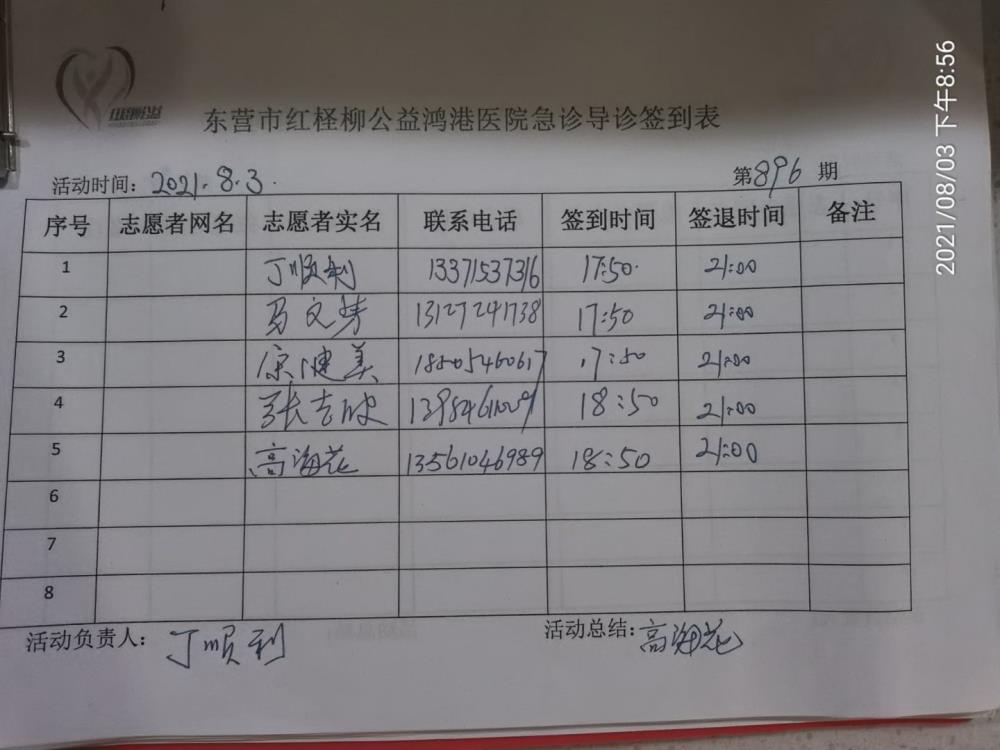 红柽柳公益
东营市红柽柳公益鸿港医院急诊导诊签到表
活动时间：2021.8.3. 第896期
序号 志愿者网名 志愿者实名 联系电话 签到时间 签退时间 备注
1 丁顺利 13371537316 17:50 21:00
2 马文芳 13127241738 17:50 21:00
3 康健美 18505460617 17:50 21:00
4 张吉 18:50 21:00
5 高海花 13561046989 18:50 21:00
6
7
8
活动负责人：丁顺利 活动总结：高海花
2021/08/03 下午8:56